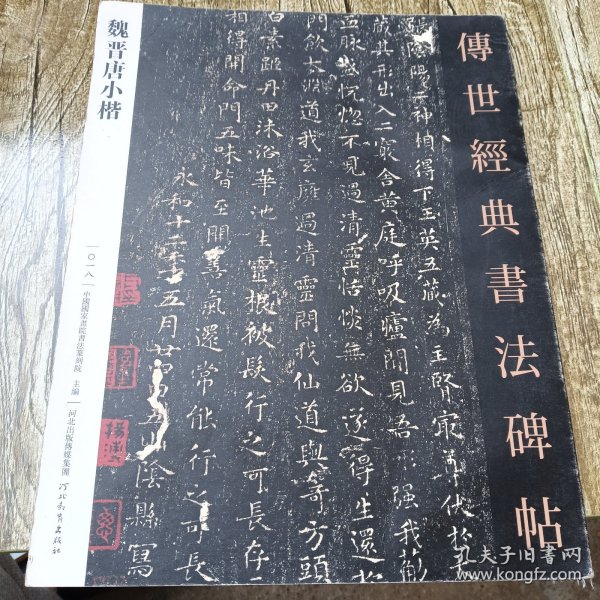 傳世經典書法碑帖
張陰陽之神怕得下玉英五藏為主腎最尊伏於
藏其形出入二竅舍黃庭呼吸廬間見吾形強我葡
血脉感怳惚不見過清靈恬惔無欲遂得生還於
門飲大淵道我玄廱過清靈問我仙道與奇方頭
白素距丹田沐浴華池生靈根被髮行之可長存
相得開命門五味皆至開善氣還常能行之可長
永和十二年五月廿四日五山陰縣寫
魏晋唐小楷
一〇一八
中國國家畫院書法篆刻院 主編
河北出版傳媒集團 河北教育出版社
孔夫子旧书网
www.kongfz.com